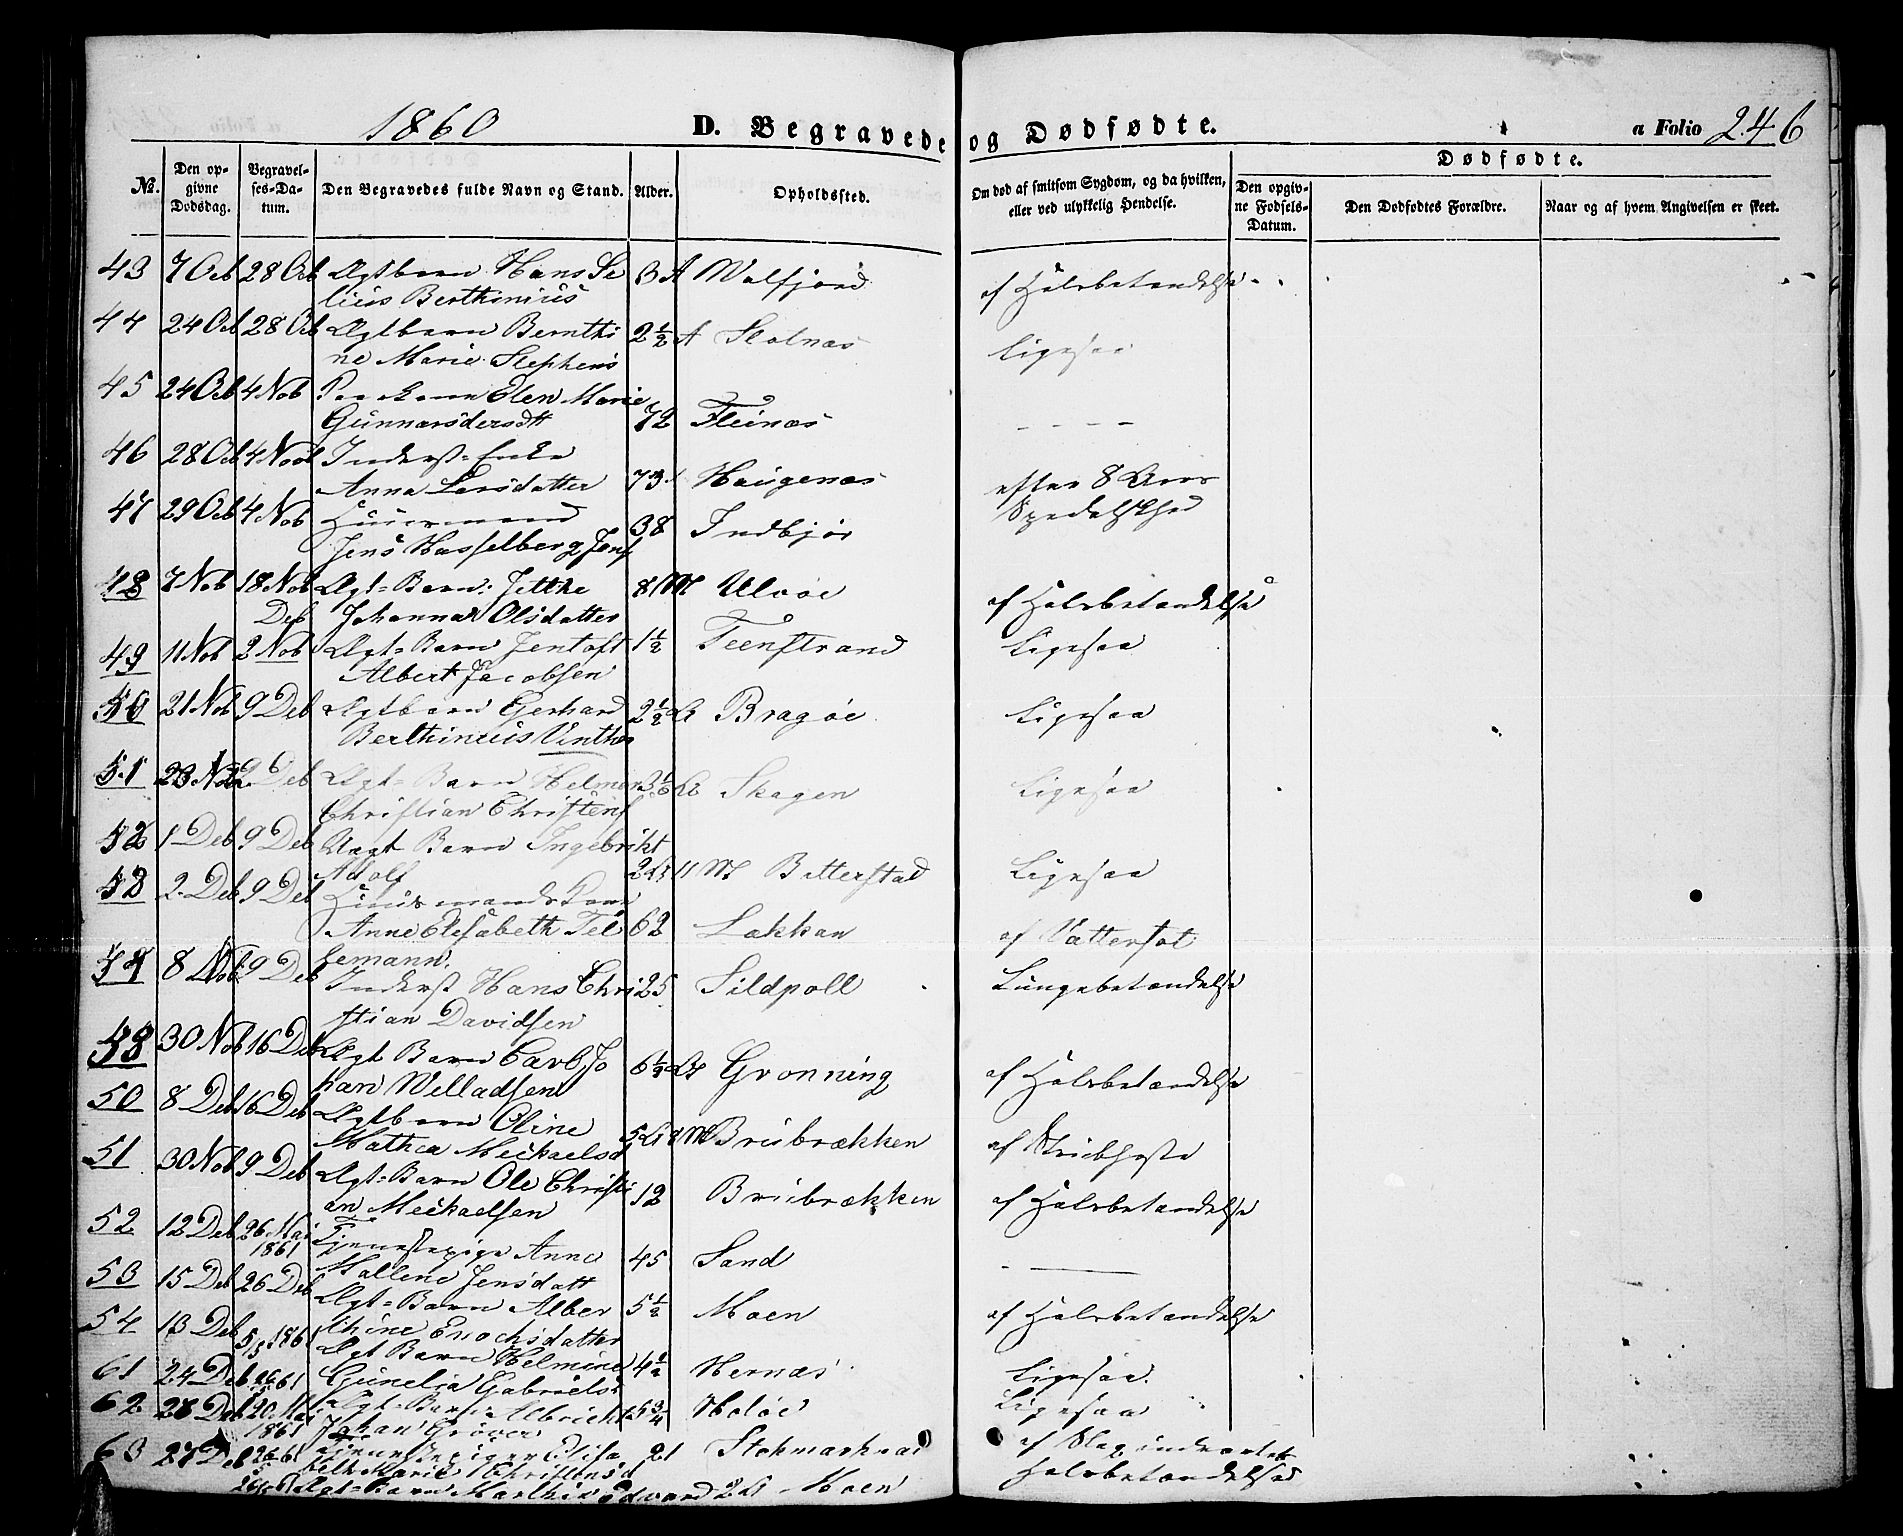 1860 D. Begravede og Dødfødte. a Folio 246
Dødfødte.
No. Den opgivne Dødsdag. Begravelses-Datum. Den Begravedes fulde Navn og Stand. Alder. Opholdssted. Om død af smitsom Sygdom, og da hvilken, eller ved ulykkelig Hendelse. Den opgivne Fødsels-Datum. Den Dødfødtes Forældre. Naar og af hvem Angivelsen er skeet.
43 7 Oct 28 Oct Ægtbarn Hans Se
lius Berthinius 3 A Walfjord af Halsbetændelse
44 24 Oct 28 Oct Ægtbarn Bernthi
ne Marie Stephens 2½ A Slotnæs Ligesaa
45 24 Oct 4 Nob Elen Marie
Gunnarsdersdtt 72 Fleinæs - - - -
46 28 Oct 4 Nob Inderst-Enke
Anna Larsdatter 73 Haugenæs
47 29 Oct 4 Nob Huusmand
Jens Hasselberg Jens 38 Indbjør efter 8 Aars
Spedalskhed
48 7 Nob 18 Nob Ægt-Barn: Jettke
Johanna Olsdatter 8 M Ulvøe af Halsbetændelse
49 11 Nob 2 Deb Ægt-Barn Jentoft
Albert Jacobsen 1½ Teenstrand Ligesaa
50 21 Nob 9 Deb Ægtbarn Gerhard
Berthinius Vinther 2½ Bragøe Ligesaa
51 23 Nob 9 Deb Ægt-Barn Helmer
Christian Christens Skagen Ligesaa
52 1 Deb 9 Deb Uægt Barn Ingebrikt
Adolf 2 11 M Bitterstad Ligesaa
2 Deb 9 Deb Huusmands Kone
Anne Elisabeth Tel
lemann. 62 Lakkan af Vattersot
8 Nob 9 Deb Inderst Hans Chri
stian Davidsen 25 Sildpoll Lungebetændelse
30 Nob 16 Deb Ægt Barn Carl Jo
han Welladsen 6½ Grønning af Halsbetændelse
50 8 Deb 16 Deb Ægtbarn Oline
Mathea Meikaelsd 5 8 M Brubrækken af Strubhoste
51 30 Nob 9 Deb Ægt-Barn Ole Christi
an Meikaelsen 12 Brubrækken af Halsbetændelse
52 12 Deb 26 Mai 1861 Tjenestepige Anne
Mallene Jensdatt 45 Sand
53 15 Deb 26 Deb Ægt-Barn Alber
thine Enochsdatter 5½ Moen af Halsbetændelse
54 13 Deb 5/5 1861 Ægt Barn Helmine
Gunelia Gabriels 4½ Hernæs Ligesaa
61 24 Deb Ægt-Barn Albrickt
Johan Grøver 5¾ Holøe Ligesaa
62 28 Deb 20 Mai 1861 Elisa
Marie Christensd 21 Stokmarknæs af Slag
63 27 Deb Ægt-Barn Marthis Edvard 2 Moen Halsbetændelse